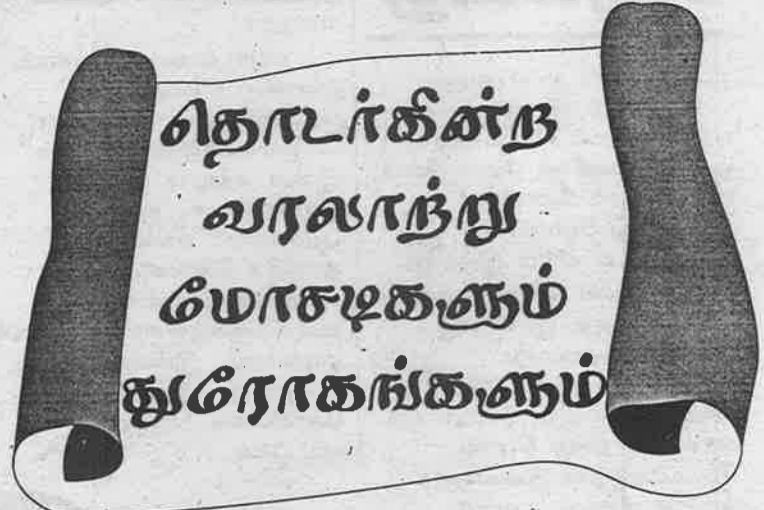 தொடர்கின்ற
வரலாற்று
மோசடிகளும்
துரோகங்களும்